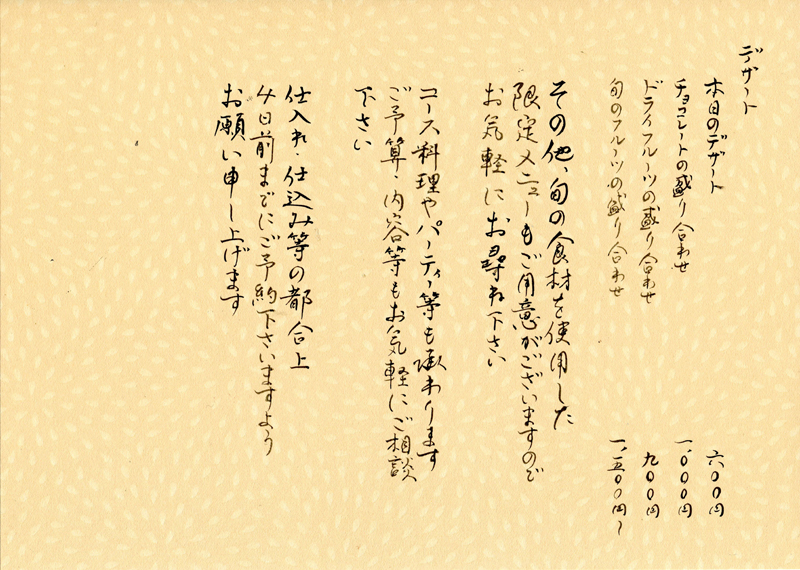 デザート
本日のデザート 六〇〇円
チョコレートの盛り合わせ 一、〇〇〇円
ドライフルーツの盛り合わせ 九〇〇円
旬のフルーツの盛り合わせ 一、五〇〇円〜
その他、旬の食材を使用した
限定メニューもご用意がございますので
お気軽にお尋ね下さい
コース料理やパーティー等も承わります
ご予算・内容等もお気軽にご相談
下さい
仕入れ・仕込み等の都合上
4日前までにご予約下さいますよう
お願い申し上げます